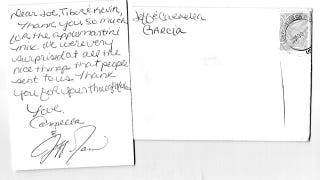 Dear Joe, Tibor & Kevin,
Thank you so much
for the appomartini
mix. We were very
surprised at all the
nice things that people
sent to us. Thank
you for your thoughtfulness
Love,
Carmela
Jeff & Carmela
Garcia